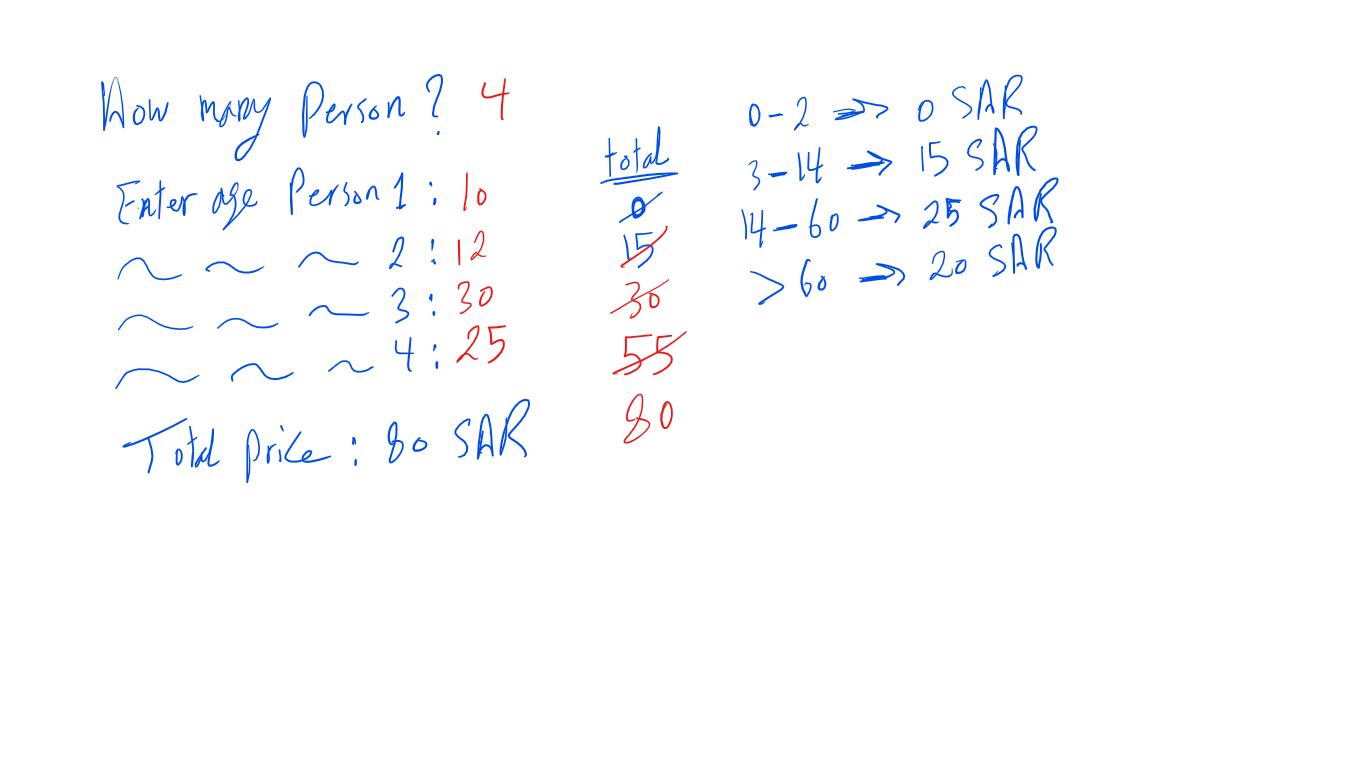 How many Person? 4
Enter age Person 1 : 10
2 : 12
3 : 30
4 : 25
Total price : 80 SAR
total
0
15
30
55
80
0-2 → 0 SAR
3-14 → 15 SAR
14-60 → 25 SAR
>60 → 20 SAR